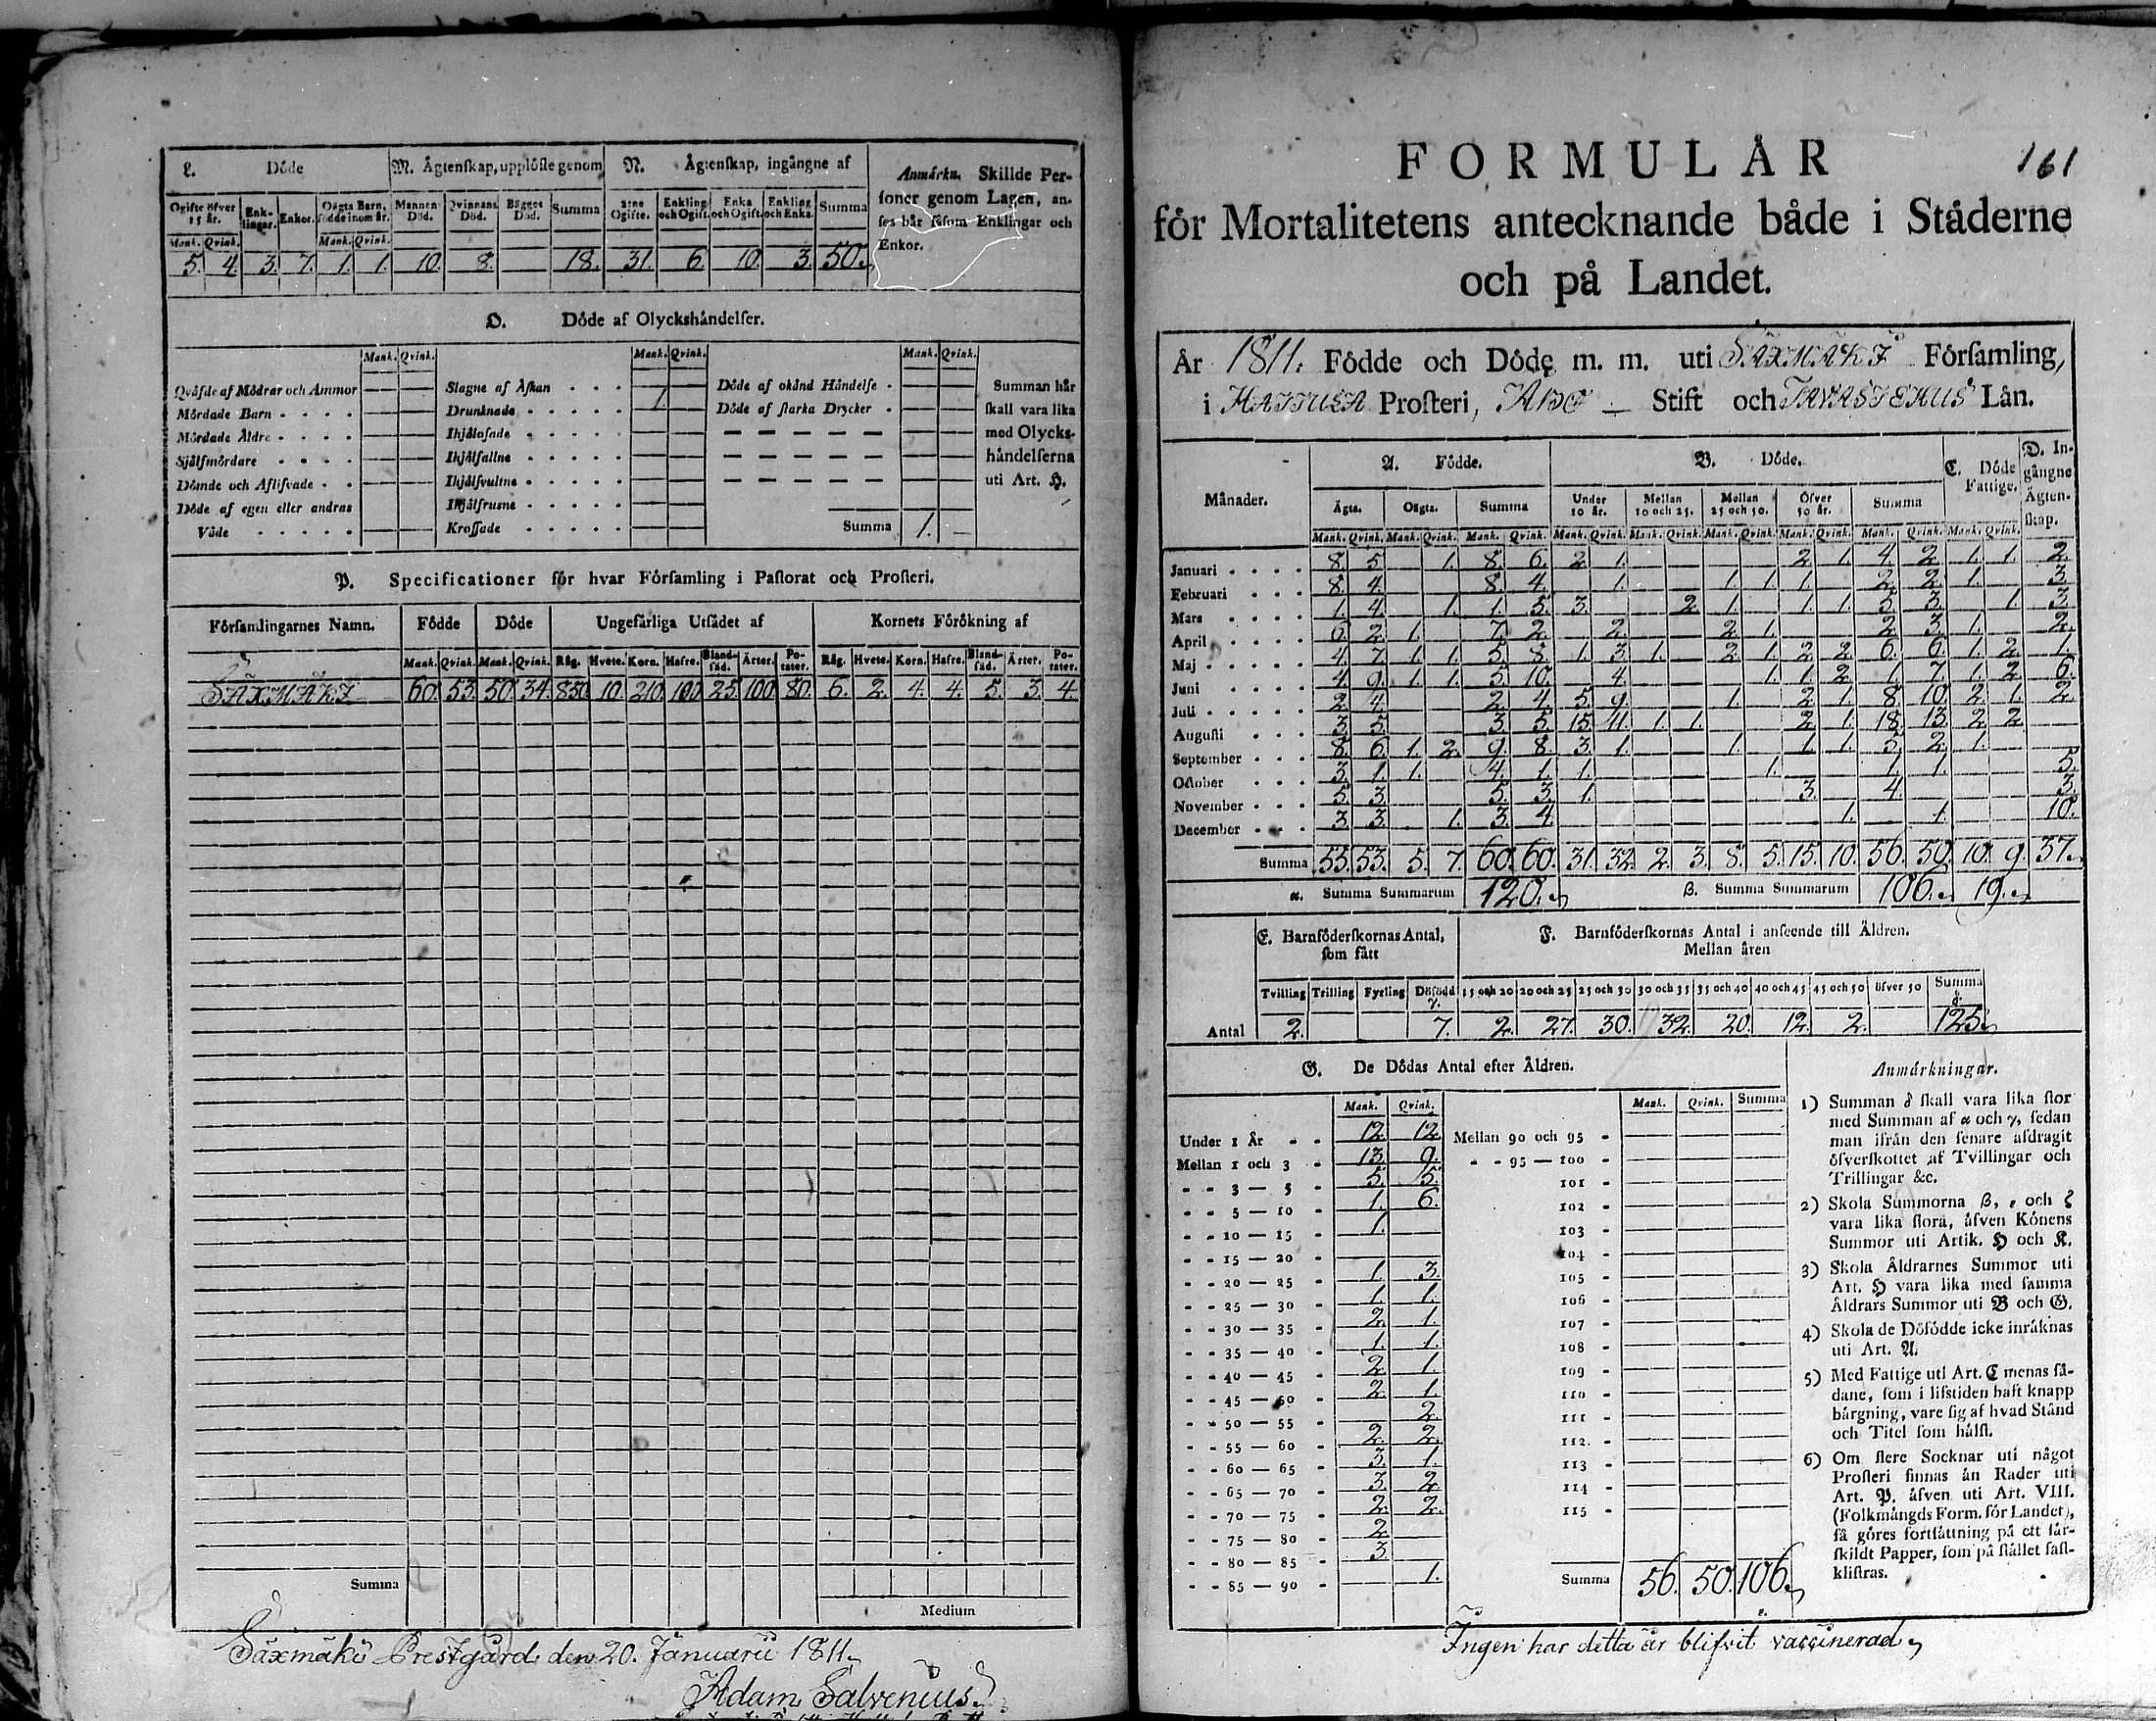 L. Döde
M. Ägtenskap, upplöste genom
N. Ägtenskap, ingångne af
Anmärkn. Skillde Per-
soner genom Lagen, an-
ses här såsom Enklingar och
Enkor.
Ogifte öfver 15 år. Enk-lingar. Enkor. Oägta Barn, födde inom år. Mannens Död. Qvinnans Död. Bägges Död. Summa 2:ne Ogifte. Enkling och Ogift. Enka och Ogift. Enkling och Enka. Summa
Mank. Qvink. Mank. Qvink.
5. 4. 3. 7. 1. 1. 10. 8. 18. 31. 6. 10. 3. 50.
O. Döde af Olyckshändelser.
Mank. Qvink. Mank. Qvink. Mank. Qvink.
Qväfde af Mödrar och Ammor
Mördade Barn
Mördade Äldre
Sjålfmördare
Dömde och Aflifvade
Döde af egen eller andras
Våde
Slagne af Åskan
Drunknade 1.
Ihjälosade
Ihjälfallne
Ihjälsvultne
Ihjälfrusne
Krossade
Döde af okänd Händelse
Döde af starka Drycker
Summa 1. —
Summan här
skall vara lika
med Olycks-
händelserna
uti Art. H.
P. Specificationer för hvar Församling i Pastorat och Prosteri.
Församlingarnes Namn. Födde Döde Ungefärliga Utsädet af Kornets Förökning af
Mank. Qvink. Mank. Qvink. Råg. Hvete. Korn. Hafre. Bland-säd. Ärter. Po-tater. Råg. Hvete. Korn. Hafre. Bland-säd. Ärter. Po-tater.
SÄXMÄKI 60. 53. 50. 34. 850. 10. 210. 100. 25. 100. 80. 6. 2. 4. 4. 5. 3. 4.
Summa
Medium
Säxmäki Prestgård den 20. Januarii 1811.
Adam Salvenius.
FORMULÄR
161
för Mortalitetens antecknande både i Städerne
och på Landet.
År 1811. Födde och Döde m. m. uti SÄXMÄKI Församling,
i HATTULA Prosteri, ÅBO — Stift och TAVASTEHUS Län.
Månader. A. Födde. B. Döde. C. Döde Fattige. D. In-gångne Ägten-skap.
Ägta. Oägta. Summa Under 10 år. Mellan 10 och 25. Mellan 25 och 50. Öfver 50 år. Summa
Mank. Qvink. Mank. Qvink. Mank. Qvink. Mank. Qvink. Mank. Qvink. Mank. Qvink. Mank. Qvink. Mank. Qvink. Mank. Qvink.
Januari 8. 5. 1. 8. 6. 2. 1. 2. 1. 4. 2. 1. 1. 2.
Februari 8. 4. 8. 4. 1. 1. 1. 1. 2. 2. 1. 3.
Mars 1. 4. 1. 1. 5. 3. 2. 1. 1. 1. 5. 3. 1. 3.
April 6. 2. 1. 7. 2. 2. 2. 1. 2. 3. 1. 2.
Maj 4. 7. 1. 1. 5. 8. 1. 3. 1. 2. 1. 2. 2. 6. 6. 1. 2. 1.
Juni 4. 9. 1. 1. 5. 10. 4. 1. 1. 2. 1. 7. 1. 2. 6.
Juli 2. 4. 2. 4. 5. 9. 1. 2. 1. 8. 10. 2. 1. 2.
Augusti 3. 5. 3. 5. 15. 11. 1. 1. 2. 1. 18. 13. 2. 2.
September 8. 6. 1. 2. 9. 8. 3. 1. 1. 1. 1. 5. 2. 1.
October 3. 1. 1. 4. 1. 1. 1. 1. 1. 5.
November 5. 3. 5. 3. 1. 3. 4. 3.
December 3. 3. 1. 3. 4. 1. 1. 10.
Summa 55. 53. 5. 7. 60. 60. 31. 32. 2. 3. 8. 5. 15. 10. 56. 50. 10. 9. 37.
α. Summa Summarum 120. β. Summa Summarum 106. 19.
E. Barnföderskornas Antal, som fått
F. Barnföderskornas Antal i anseende till Äldren.
Mellan åren
Tvilling Trilling Fyrling Döfödd γ. 15 och 20 20 och 25 25 och 30 30 och 35 35 och 40 40 och 45 45 och 50 öfver 50 Summa δ.
Antal 2. 7. 2. 27. 30. 32. 20. 12. 2. 125.
G. De Dödas Antal efter Äldren.
Mank. Qvink. Mank. Qvink. Summa
Under 1 År 12. 12.
Mellan 1 och 3 13. 9.
3 — 5 5. 5.
5 — 10 1. 6.
10 — 15 1.
15 — 20
20 — 25 1. 3.
25 — 30 1. 1.
30 — 35 2. 1.
35 — 40 1. 1.
40 — 45 2. 1.
45 — 50 2. 1.
50 — 55 2.
55 — 60 2. 2.
60 — 65 3. 1.
65 — 70 3. 2.
70 — 75 2. 2.
75 — 80 2.
80 — 85 3.
85 — 90 1.
Mellan 90 och 95
95 — 100
101
102
103
104
105
106
107
108
109
110
111
112
113
114
115
Summa 56. 50. 106.
Anmärkningar.
1) Summan δ skall vara lika stor
med Summan af α och γ, sedan
man ifrån den senare afdragit
öfverskottet af Tvillingar och
Trillingar &c.
2) Skola Summorna β, ε och ζ
vara lika stora, äfven Könens
Summor uti Artik. H och K.
3) Skola Åldrarnes Summor uti
Art. H vara lika med samma
Åldrars Summor uti B och G.
4) Skola de Döfödde icke inräknas
uti Art. A.
5) Med Fattige uti Art. C menas så-
dane, som i lifstiden haft knapp
bärgning, vare sig af hvad Stånd
och Titel som hälst.
6) Om flere Socknar uti något
Prosteri finnas än Rader uti
Art. P. äfven uti Art. VIII.
(Folkmängds Form. för Landet),
så göres fortsättning på ett sär-
skildt Papper, som på stället fast-
klistras.
Ingen har detta år blifvit vaccinerad.